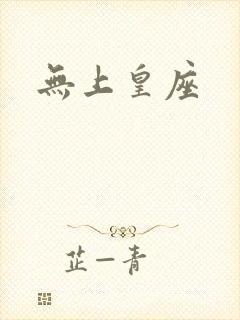 無上皇座
芷一青